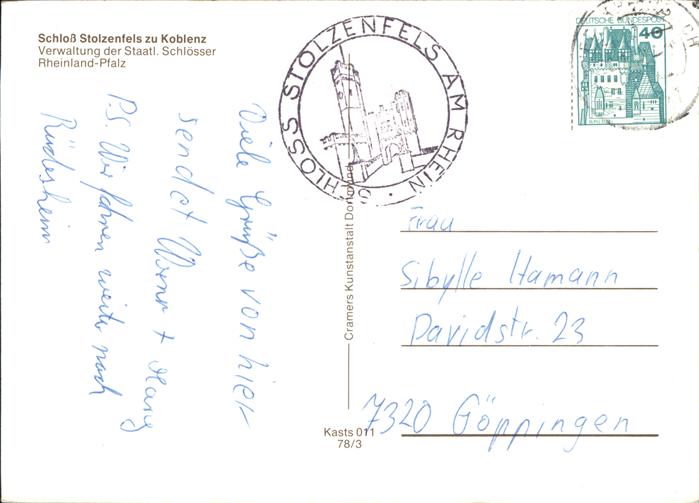 Schloß Stolzenfels zu Koblenz
Verwaltung der Staatl. Schlösser
Rheinland-Pfalz
Viele Grüße von hier
sendet Werner +
P.S. Wir fahren weiter nach
Rüdesheim
SCHLOSS STOLZENFELS AM RHEIN
DEUTSCHE BUNDESPOST
40
Cramers Kunstanstalt Dortmund
Kasts 011
78/3
Frau
Sibylle Hamann
Davidstr. 23
7320 Göppingen